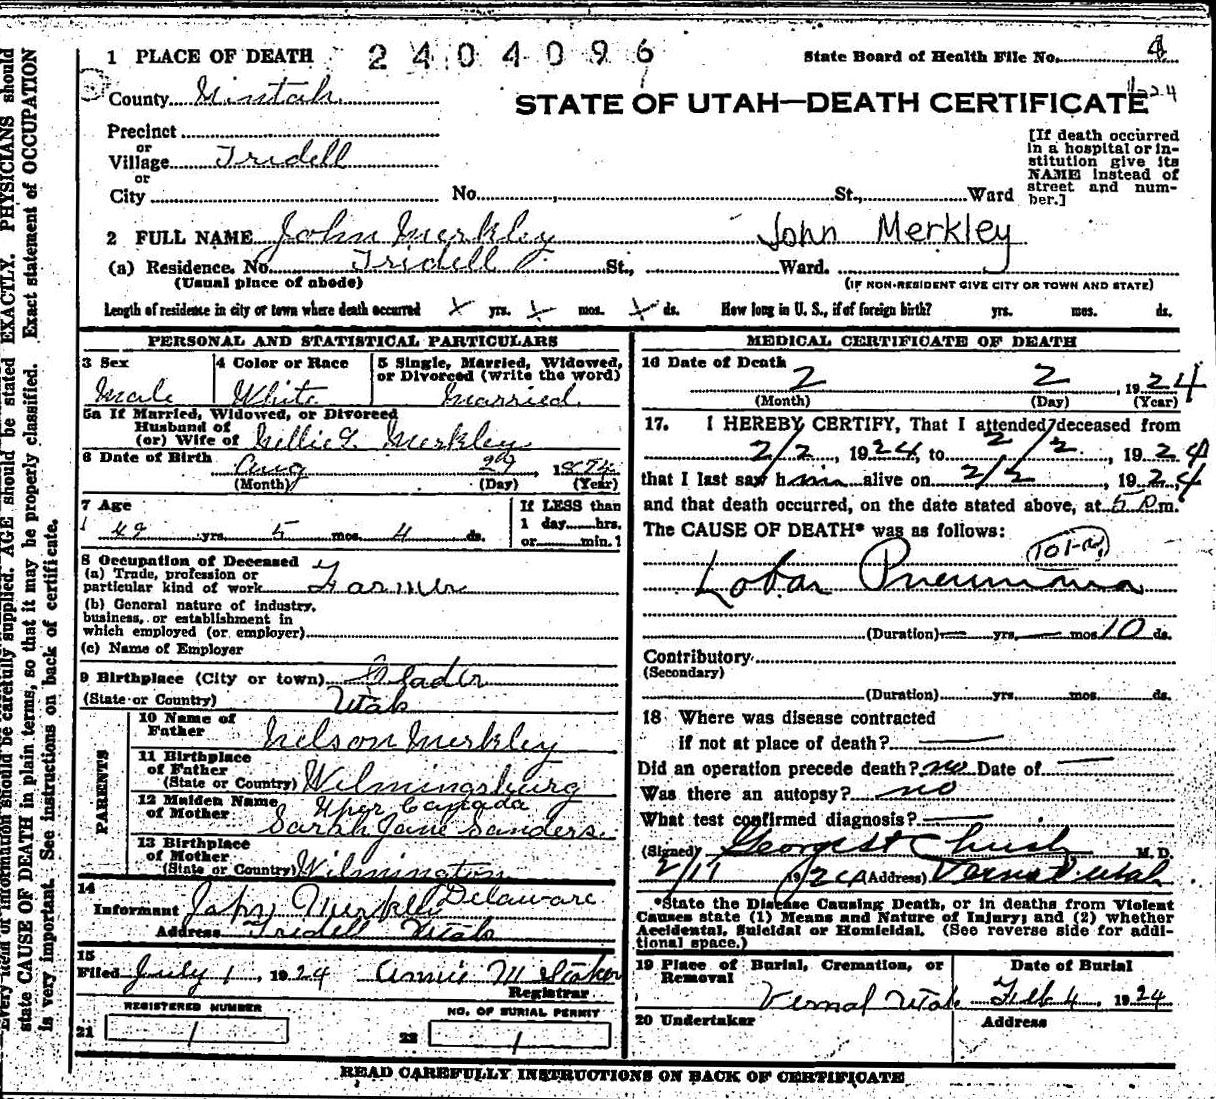 1 PLACE OF DEATH 2404096 State Board of Health File No. 4
County Uintah STATE OF UTAH—DEATH CERTIFICATE
Precinct
or
Village Tridell
or
City No. St., Ward
[If death occurred in a hospital or institution give its NAME instead of street and number.]
2 FULL NAME John Merkley John Merkley
(a) Residence. No. Tridell St., Ward.
(Usual place of abode) (IF NON-RESIDENT GIVE CITY OR TOWN AND STATE)
Length of residence in city or town where death occurred yrs. mos. ds. How long in U. S., if of foreign birth? yrs. mos. ds.
PERSONAL AND STATISTICAL PARTICULARS
3 Sex 4 Color or Race 5 Single, Married, Widowed, or Divorced (write the word)
Male White Married
5a If Married, Widowed, or Divorced
Husband of
(or) Wife of Nellie T. Merkley
6 Date of Birth Aug 29, 1874
(Month) (Day) (Year)
7 Age If LESS than
49 yrs. 5 mos. 4 ds. 1 day hrs.
or min.
8 Occupation of Deceased
(a) Trade, profession or
particular kind of work Farmer
(b) General nature of industry,
business, or establishment in
which employed (or employer)
(c) Name of Employer
9 Birthplace (City or town)
(State or Country) Utah
PARENTS
10 Name of
Father Nelson Merkley
11 Birthplace
of Father
(State or Country) Wilmingsburg
Uper Canada
12 Maiden Name
of Mother Sarah Jane Sanders
13 Birthplace
of Mother
(State or Country) Wilmington
Delaware
14
Informant John Merkley
Address Tridell Utah
15
Filed July 1, 1924 Annie M Stoker
Registrar
REGISTERED NUMBER NO. OF BURIAL PERMIT
21 1 22 1
MEDICAL CERTIFICATE OF DEATH
16 Date of Death
2 2 1924
(Month) (Day) (Year)
17. I HEREBY CERTIFY, That I attended deceased from
2/2, 1924, to 2/2, 1924
that I last saw him alive on 2/2, 1924
and that death occurred, on the date stated above, at 5 P.m.
The CAUSE OF DEATH* was as follows:
101-a
Lobar Pneumonia
(Duration) — yrs. — mos. 10 ds.
Contributory
(Secondary)
(Duration) yrs. mos. ds.
18 Where was disease contracted
if not at place of death? —
Did an operation precede death? no Date of —
Was there an autopsy? no
What test confirmed diagnosis? —
(Signed) M. D.
2/17 1924 (Address) Vernal Utah
*State the Disease Causing Death, or in deaths from Violent
Causes state (1) Means and Nature of Injury; and (2) whether
Accidental, Suicidal or Homicidal. (See reverse side for addi-
tional space.)
19 Place of Burial, Cremation, or Removal Date of Burial
Vernal Utah Feb 4, 1924
20 Undertaker Address
READ CAREFULLY INSTRUCTIONS ON BACK OF CERTIFICATE
Every item of information should be carefully supplied. AGE should be stated EXACTLY. PHYSICIANS should
state CAUSE OF DEATH in plain terms, so that it may be properly classified. Exact statement of OCCUPATION
is very important. See instructions on back of certificate.